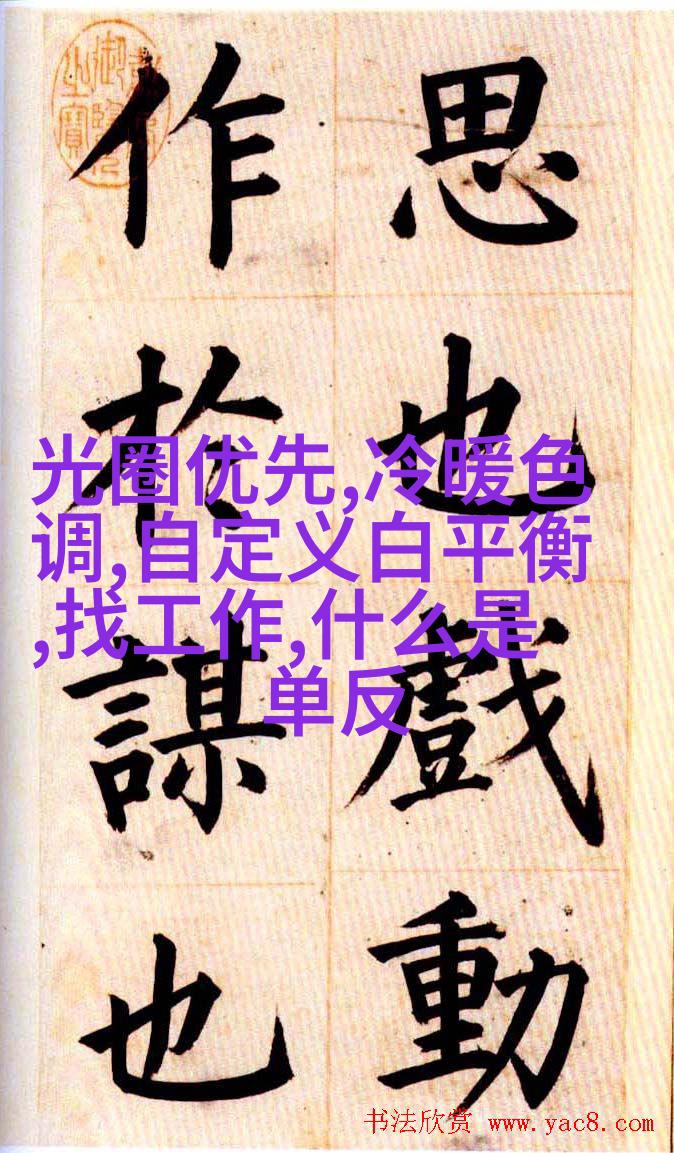 思也戲動
作於謀也
光圈优先,冷暖色
调,自定义白平衡
,找工作,什么是
单反
书法欣赏 www.yac8.com